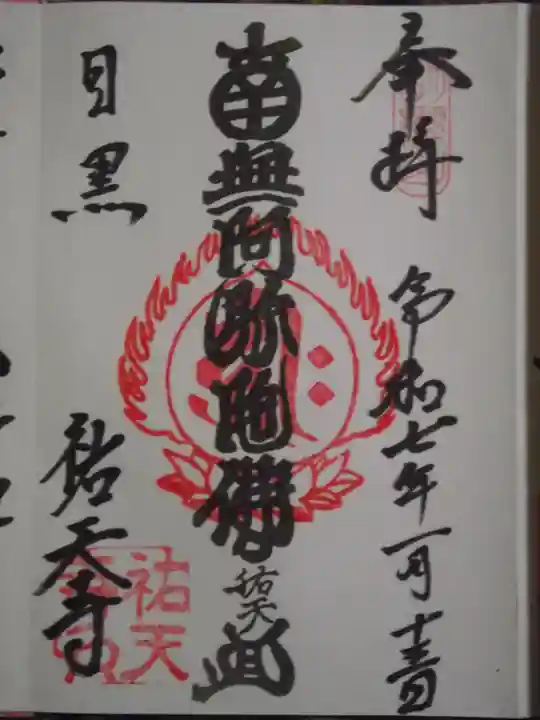 奉拝 令和七年一月十三日
南無阿弥陀佛
祐天
目黒 祐天寺
祐天